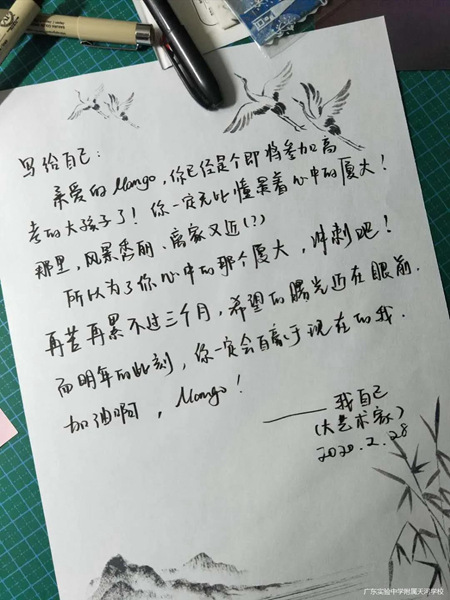 写给自己：
亲爱的Mango，你已经是个即将参加高
考的大孩子了！你一定无比憧憬着心中的厦大！
那里，风景秀丽、离家又近(?)
所以为了你心中的那个厦大，冲刺吧！
再苦再累不过三个月，希望的曙光近在眼前．
而明年的此刻，你一定会自豪于现在的我．
加油啊，Mango！
——我自己
(大艺术家)
2020.2.28
广东实验中学附属天河学校